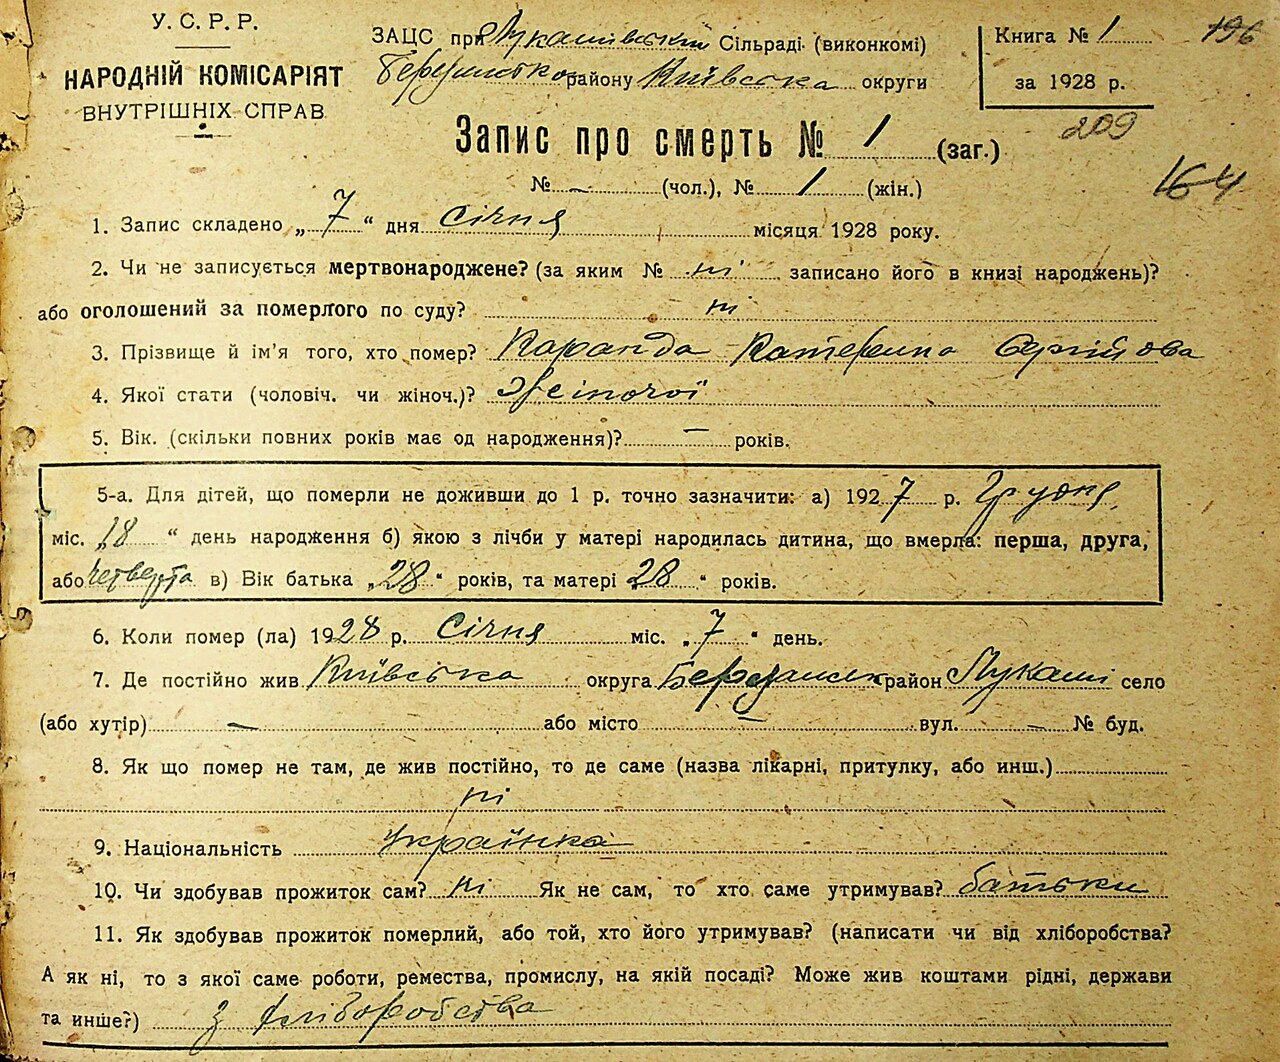 У. С. Р. Р.
НАРОДНІЙ КОМІСАРІЯТ
ВНУТРІШНІХ СПРАВ
ЗАЦС при Лукашівській Сільраді (виконкомі)
району Київська округи
Книга № 1
за 1928 р.
196
209
164
Запис про смерть № 1 (заг.)
№ – (чол.), № 1 (жін.)
1. Запис складено „ 7 “ дня Січня місяця 1928 року.
2. Чи не записується мертвонароджене? (за яким № ні записано його в книзі народжень)?
або оголошений за померлого по суду? ні
3. Прізвище й ім'я того, хто помер? Каранда Катерина Сергійова
4. Якої стати (чоловіч. чи жіноч.)? Жіночої
5. Вік. (скільки повних років має од народження)? – років.
5-а. Для дітей, що померли не доживши до 1 р. точно зазначити: а) 1927 р. Грудня
міс. „18 “ день народження б) якою з лічби у матері народилась дитина, що вмерла: перша, друга,
або четверта в) Вік батька „28“ років, та матері 28 “ років.
6. Коли помер (ла) 1928 р. Січня міс. „ 7 “ день.
7. Де постійно жив Київська округа район Лукаші село
(або хутір) – або місто – вул. – № буд.
8. Як що помер не там, де жив постійно, то де саме (назва лікарні, притулку, або инш.)
ні
9. Національність Українка
10. Чи здобував прожиток сам? ні Як не сам, то хто саме утримував? батьки
11. Як здобував прожиток померлий, або той, хто його утримував? (написати чи від хліборобства?
А як ні, то з якої саме роботи, ремества, промислу, на якій посаді? Може жив коштами рідні, держави
та инше?) з хліборобства